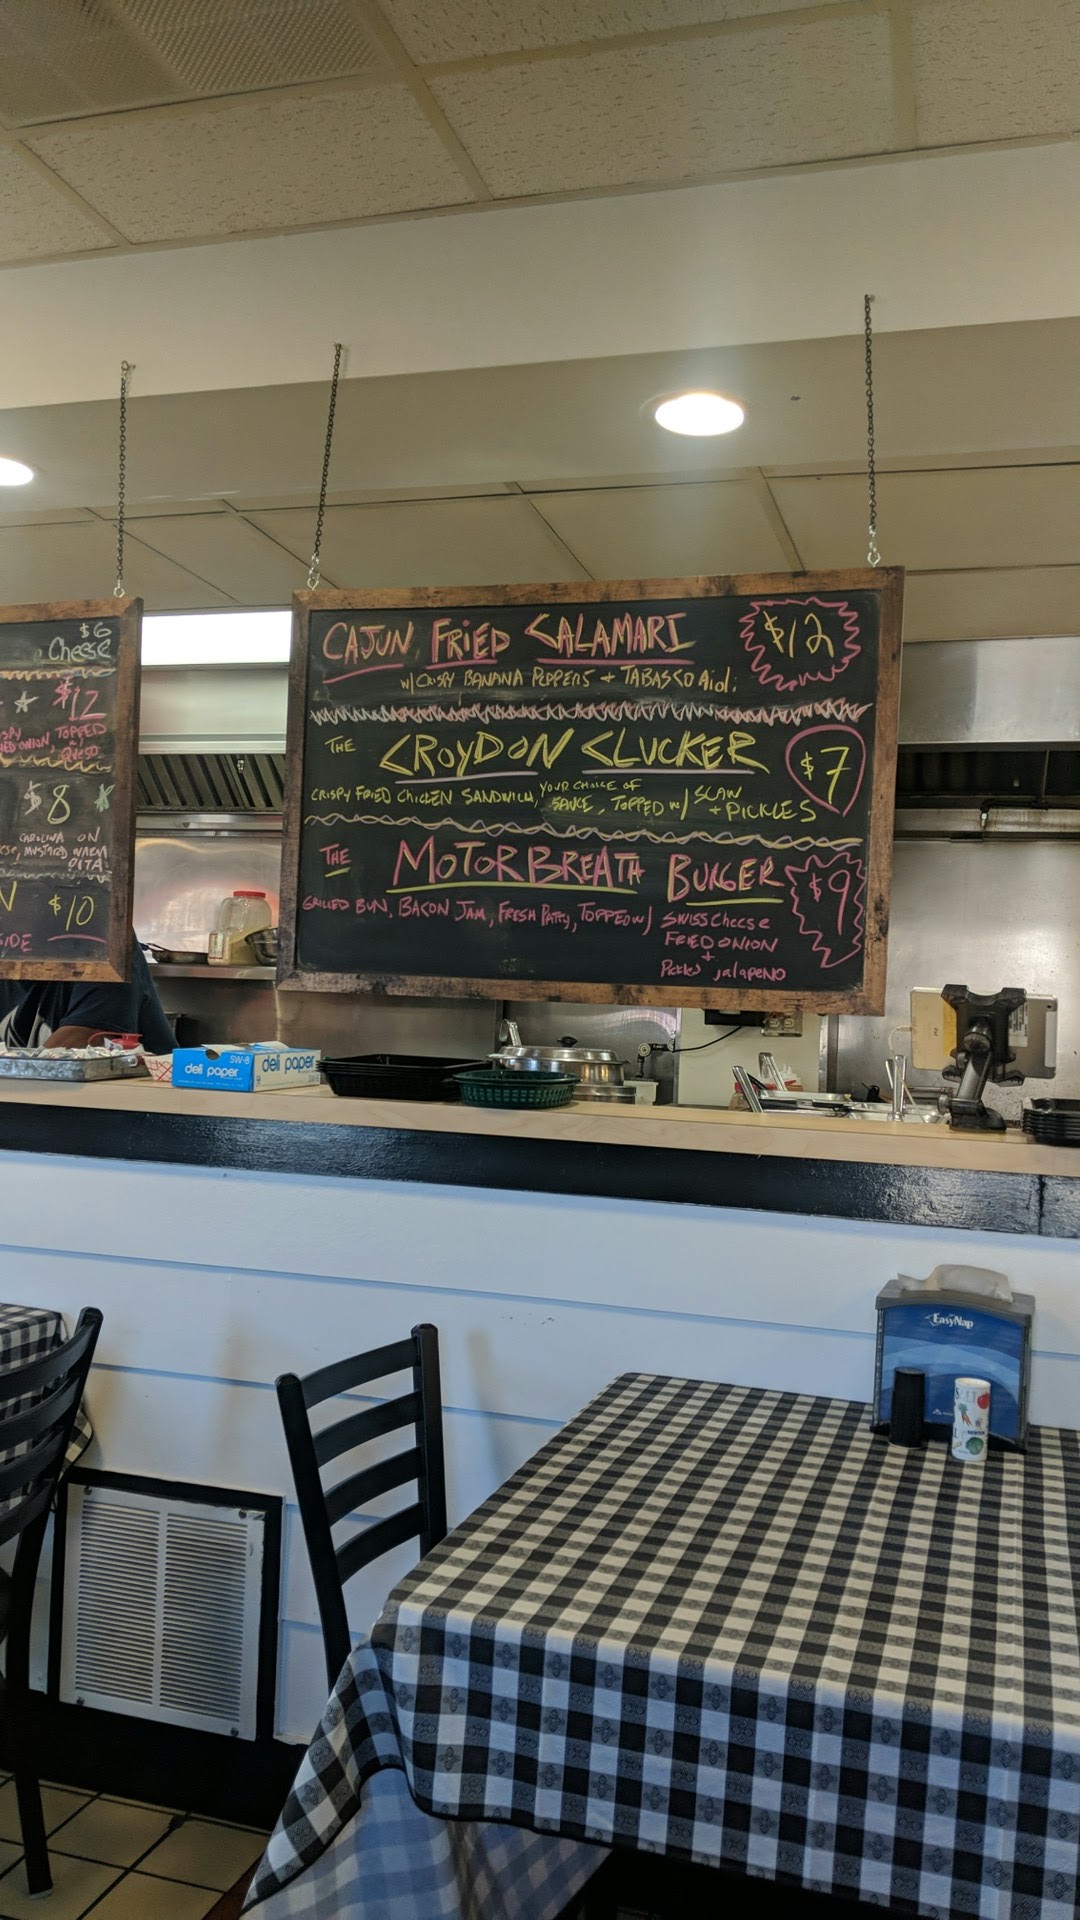 $6
Cheese
$12
TOPPED
ED ONION, w/
QUESO
$8
CAROLINA ON
MUSTARD WARM
PITA
N $10
SIDE
CAJUN FRIED CALAMARI $12
w/ CRISPY BANANA PEPPERS + TABASCO Aioli
THE CROYDON CLUCKER $7
CRISPY FRIED CHICKEN SANDWICH, YOUR CHOICE OF SAUCE, TOPPED w/ SLAW + PICKLES
THE MOTORBREATH BURGER $9
GRILLED BUN, BACON JAM, FRESH PATTY, TOPPED w/ SWISS Cheese
FRIED ONION
+
Pickled jalapeno
SW-8
deli paper deli paper
EasyNap